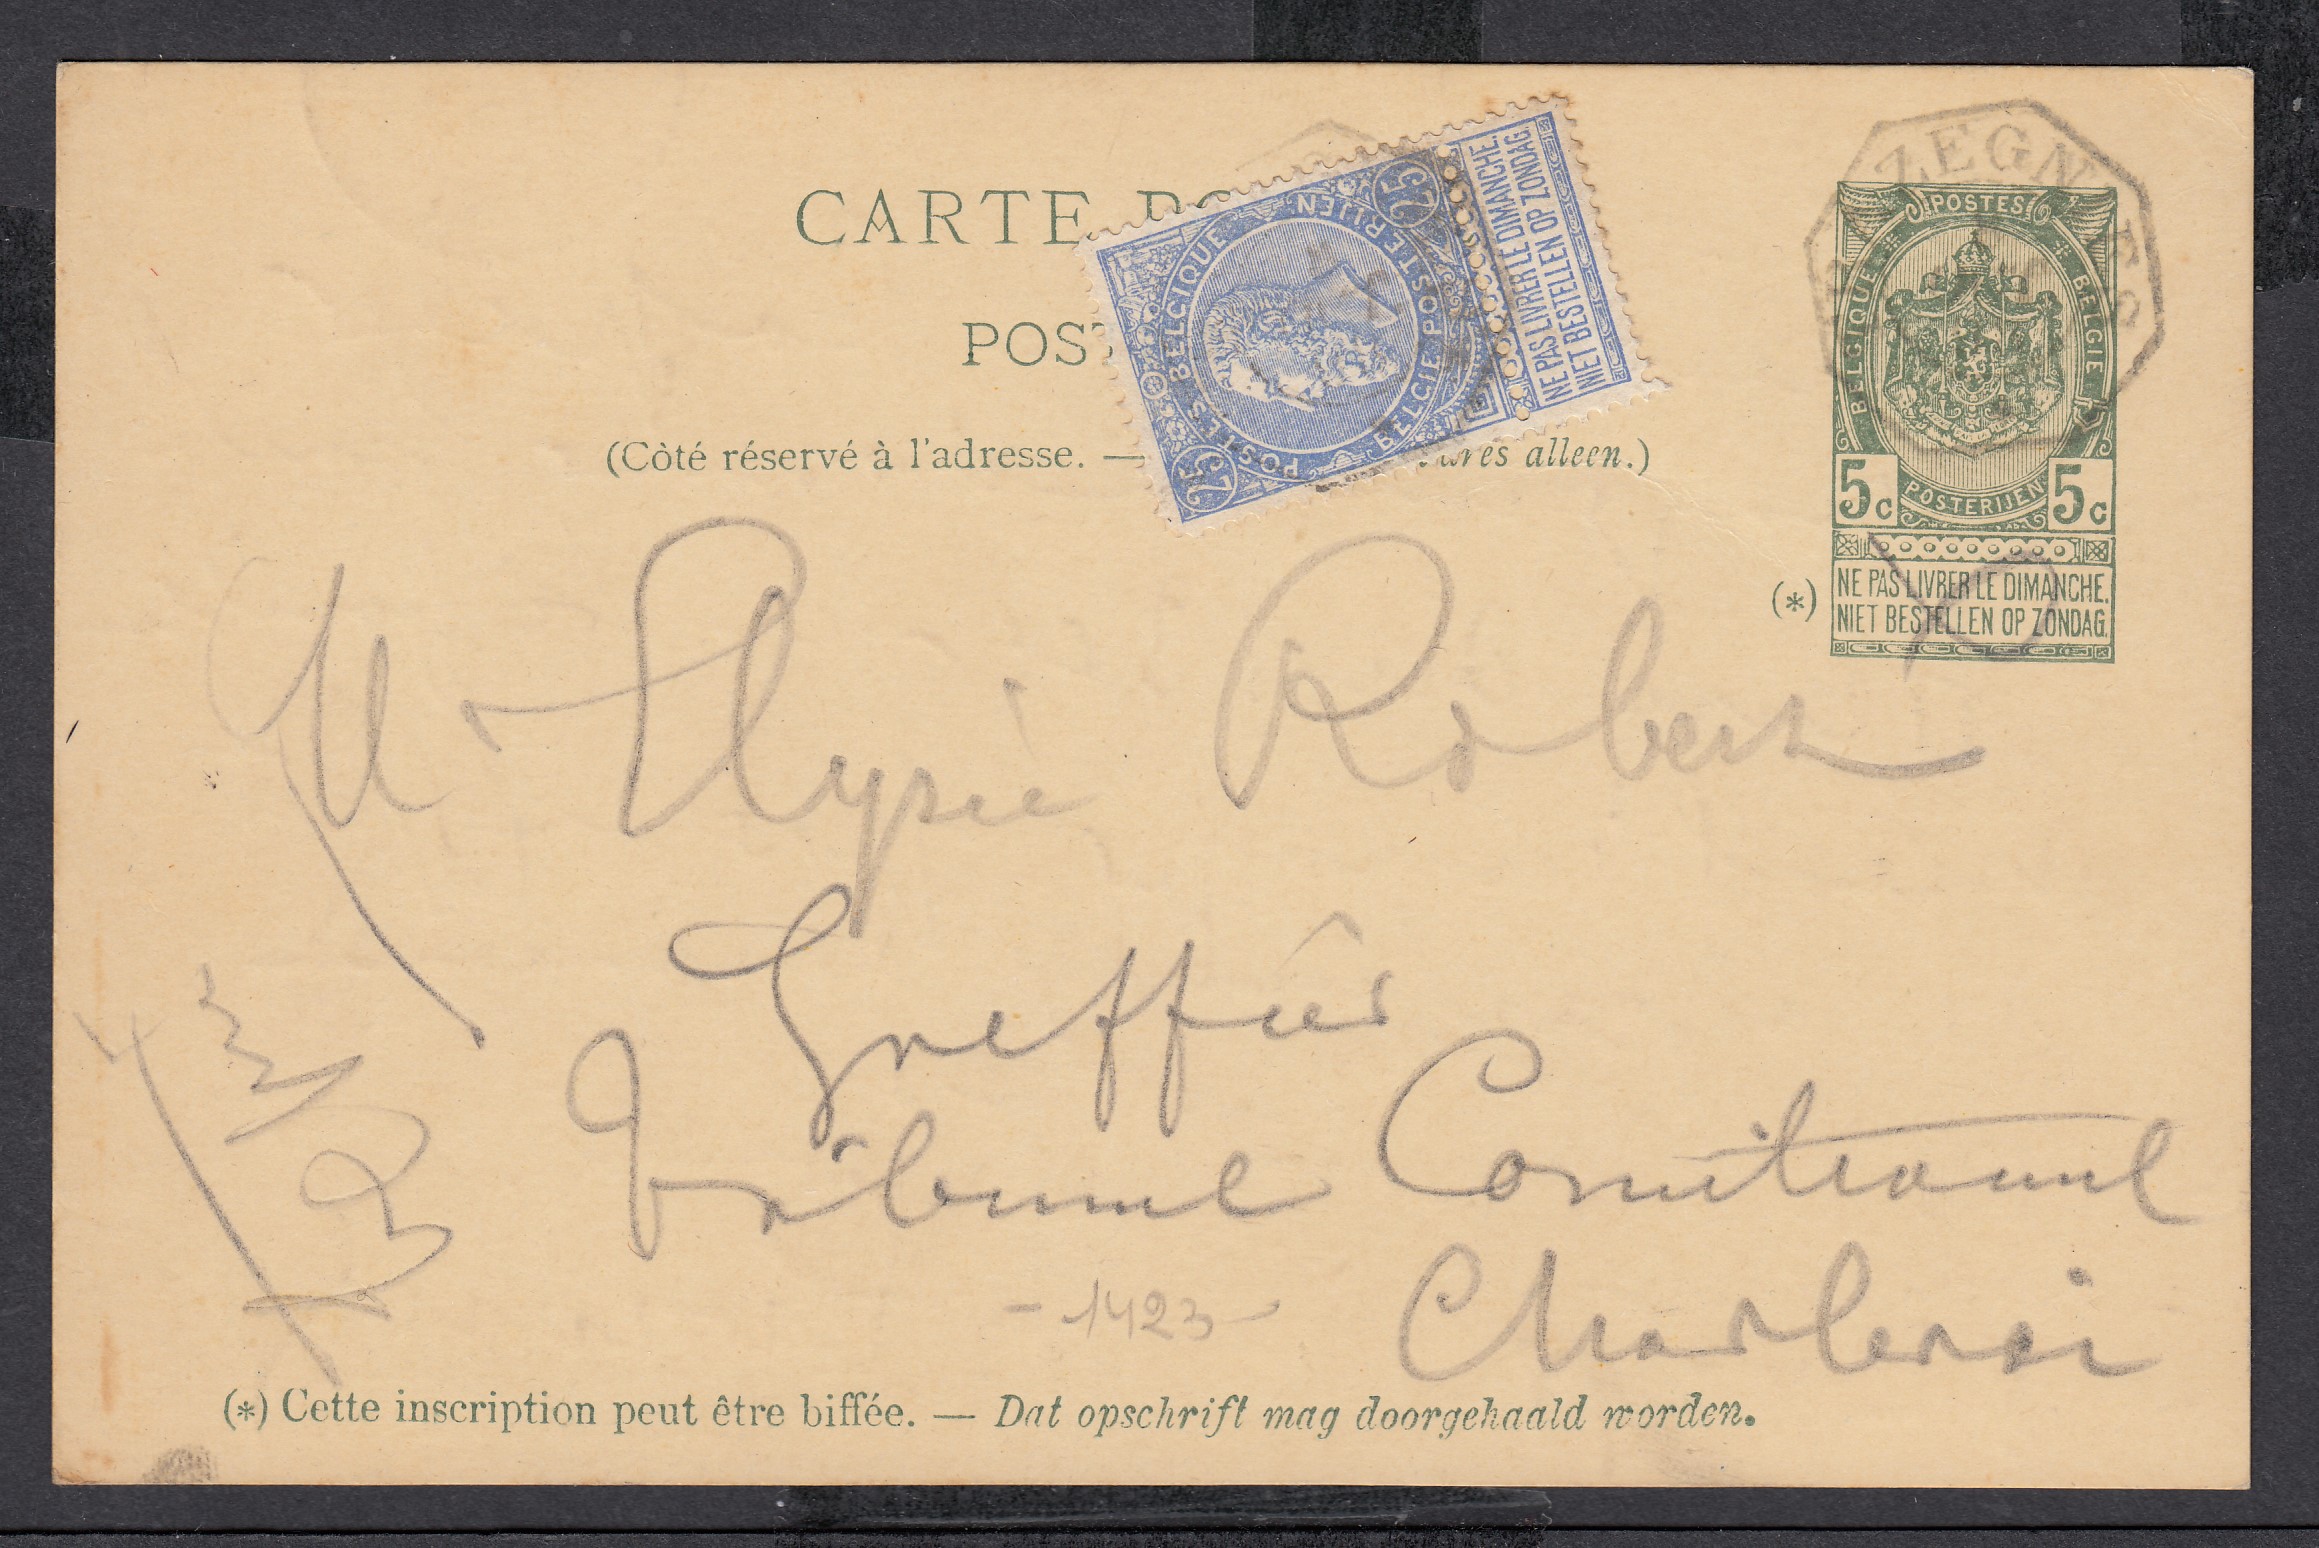 CARTE PO
POST
(Côté réservé à l'adresse. — alleen.)
25
POSTES BELGIQUE
BELGIE POSTERIJEN
25
NE PAS LIVRER LE DIMANCHE.
NIET BESTELLEN OP ZONDAG.
ZEGN
POSTES
BELGIQUE
BELGIE
POSTERIJEN
5c 5c
(*) NE PAS LIVRER LE DIMANCHE.
NIET BESTELLEN OP ZONDAG.
Mr Elysée Robert
Greffier
Tribunal
Charleroi
- 1423 -
(*) Cette inscription peut être biffée. — Dat opschrift mag doorgehaald worden.